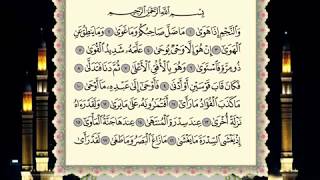 بِسْمِ اللَّهِ الرَّحْمَٰنِ الرَّحِيمِ
وَالنَّجْمِ إِذَا هَوَىٰ ١ مَا ضَلَّ صَاحِبُكُمْ وَمَا غَوَىٰ ٢ وَمَا يَنطِقُ عَنِ
الْهَوَىٰ ٣ إِنْ هُوَ إِلَّا وَحْيٌ يُوحَىٰ ٤ عَلَّمَهُ شَدِيدُ الْقُوَىٰ ٥
ذُو مِرَّةٍ فَاسْتَوَىٰ ٦ وَهُوَ بِالْأُفُقِ الْأَعْلَىٰ ٧ ثُمَّ دَنَا فَتَدَلَّىٰ ٨
فَكَانَ قَابَ قَوْسَيْنِ أَوْ أَدْنَىٰ ٩ فَأَوْحَىٰ إِلَىٰ عَبْدِهِ مَا أَوْحَىٰ ١٠
مَا كَذَبَ الْفُؤَادُ مَا رَأَىٰ ١١ أَفَتُمَارُونَهُ عَلَىٰ مَا يَرَىٰ ١٢ وَلَقَدْ رَءَاهُ
نَزْلَةً أُخْرَىٰ ١٣ عِندَ سِدْرَةِ الْمُنتَهَىٰ ١٤ عِندَهَا جَنَّةُ الْمَأْوَىٰ ١٥
إِذْ يَغْشَى السِّدْرَةَ مَا يَغْشَىٰ ١٦ مَا زَاغَ الْبَصَرُ وَمَا طَغَىٰ ١٧ لَقَدْ رَأَىٰ